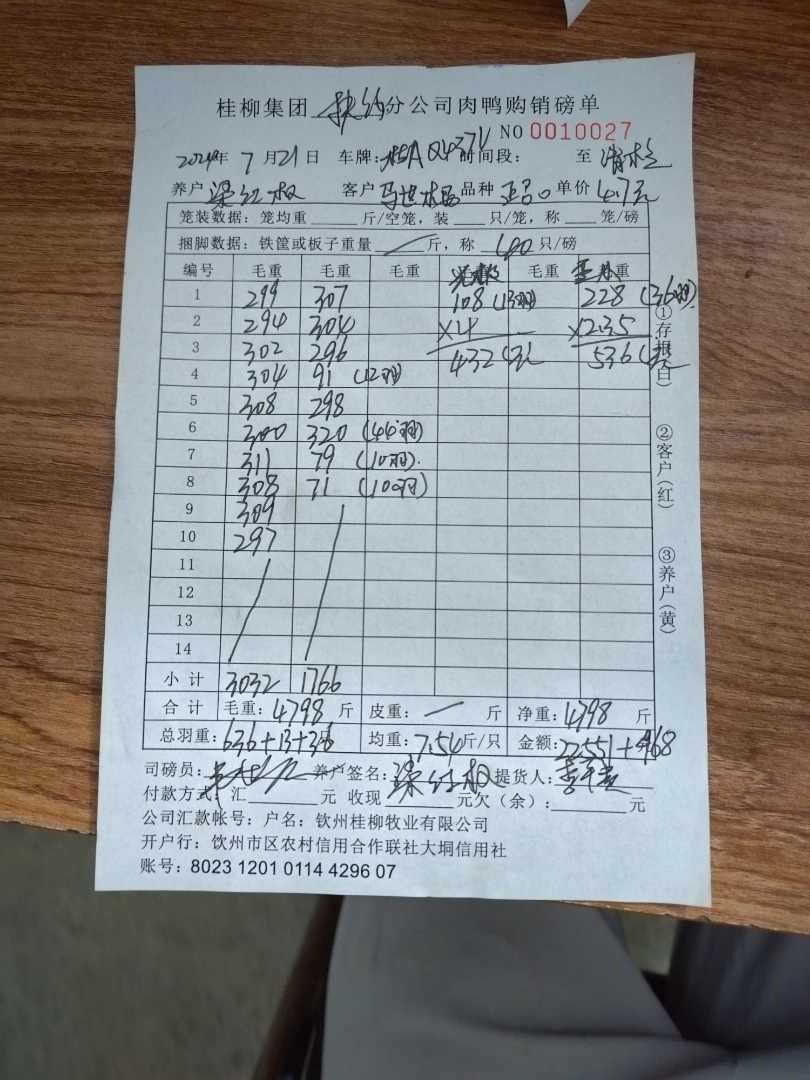 桂柳集团 分公司肉鸭购销磅单
NO 0010027
2024年 7月21日 车牌: 时间段: 至
养户 梁红权 客户 品种 单价 4.7元
笼装数据: 笼均重 斤/空笼, 装 只/笼, 称 笼/磅
捆脚数据: 铁筐或板子重量 / 斤, 称 40 只/磅
编号 毛重 毛重 毛重 毛重 重
1 299 307 108 (13羽) 228 (36羽)
2 294 304 ×4 ×2.35
3 302 296 432 536
4 304 91 (12羽)
5 308 298
6 300 320 (44羽)
7 311 79 (10羽)
8 308 71 (10羽)
9 309
10 297
11
12
13
14
小计 3032 1766
合计 毛重: 4798 斤 皮重: / 斤 净重: 4798 斤
总羽重: 636+13+36 只 均重: 7.54 斤/只 金额: 22551+968
司磅员: 养户签名: 梁红权 提货人:
付款方式: 汇 元 收现 元欠(余): 元
公司汇款帐号: 户名: 钦州桂柳牧业有限公司
开户行: 钦州市区农村信用合作联社大垌信用社
账号: 8023 1201 0114 4296 07
①存根(白)
②客户(红)
③养户(黄)